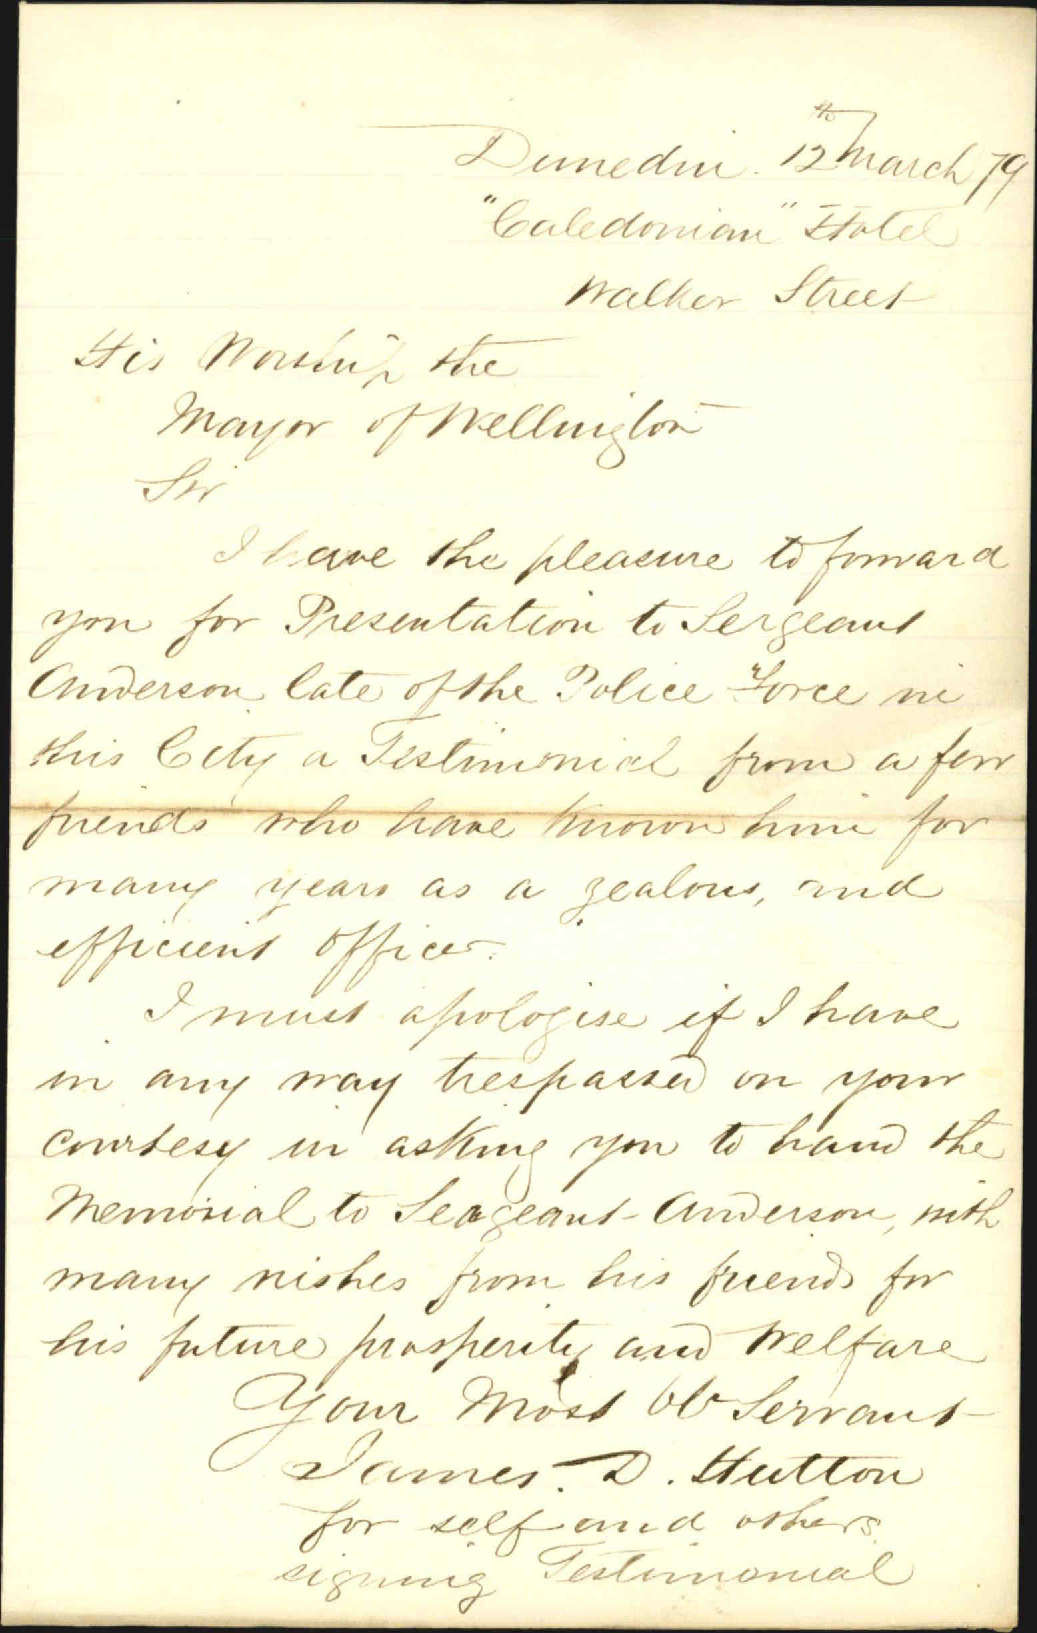 Dunedin. 12th March 79
"Caledonian" Hotel
Walker Street
His Worship the
Mayor of Wellington
Sir
I have the pleasure to forward
you for Presentation to Sergeant
Anderson late of the Police Force in
this City a Testimonial from a few
friends who have known him for
many years as a zealous, and
efficient officer.
I must apologise if I have
in any way trespassed on your
courtesy in asking you to hand the
Memorial to Seageant Anderson, with
many wishes from his friends for
his future prosperity and welfare
Your Most Ob Servant
James. D. Hutton
for self and others
signing Testimonial